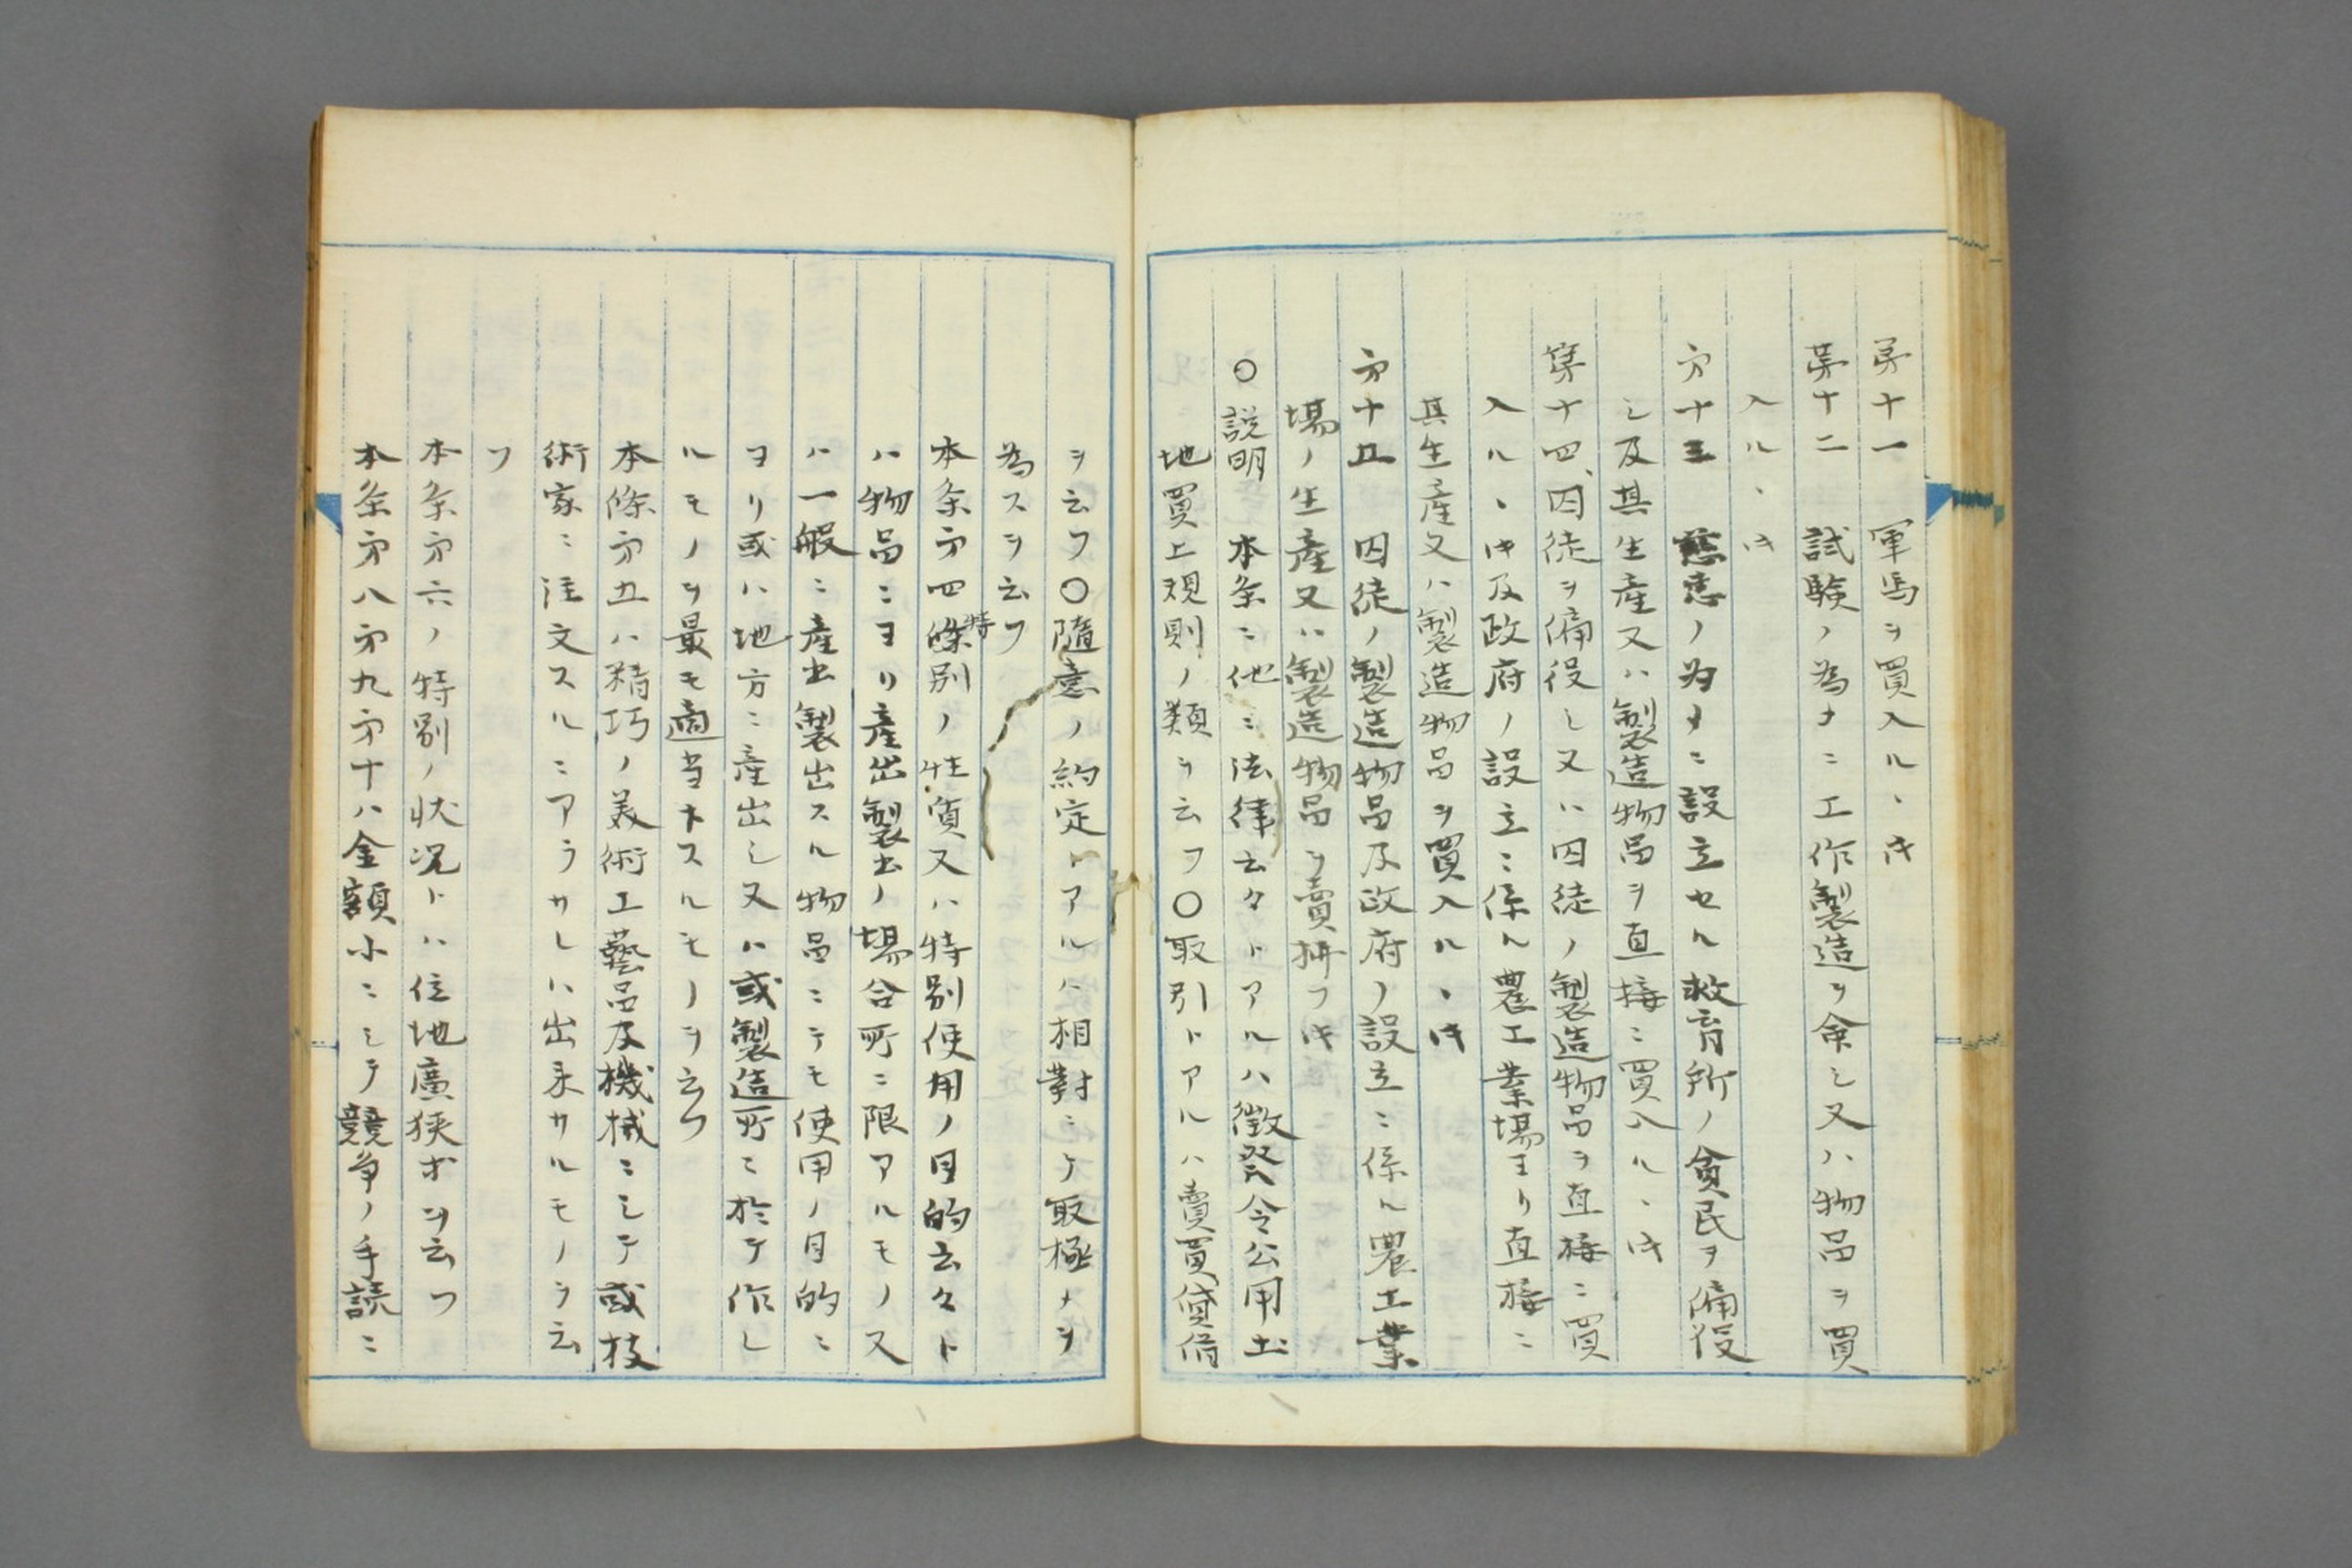 第十一　軍馬ヲ買入ルヽ㕝
第十二　試験ノ為メニ工作製造ヲ命シ又ハ物品ヲ買
入ルヽ㕝
第十三　慈恵ノ為メニ設立セル救育所ノ貧民ヲ傭役
シ及其生産又ハ製造物品ヲ直接ニ買入ルヽ㕝
第十四、囚徒ヲ傭役シ又ハ囚徒ノ製造物品ヲ直接ニ買
入ルヽ㕝及政府ノ設立ニ係ル農工業場ヨリ直接ニ
其生産又ハ製造物品ヲ買入ルヽ㕝
第十五　囚徒ノ製造物品及政府ノ設立ニ係ル農工業
場ノ生産又ハ製造物品ヲ賣拂フ㕝
〇説明　本条ニ他ニ法律云々トアルハ徴発令公用土
地買上規則ノ類ヲ云フ〇取引トアルハ賣買貸借
ヲ云フ〇随意ノ約定トアルハ相對ニテ取極メヲ
為スヲ云フ
本条第四特別ノ性質又ハ特別使用ノ目的云々ト
ハ物品ニヨリ産出製出ノ場合所ニ限アルモノ又
ハ一般ニ産出製出スル物品ニテモ使用ノ目的ニ
ヨリ或ハ地方ニ産出シ又ハ或製造所ニ於テ作レ
ルモノヲ最モ適当トスルモノヲ云フ
本條第五ハ精巧ノ美術工藝品及機械ニシテ或技
術家ニ注文スルニアラサレハ出来サルモノヲ云
フ
本条第六ノ特別ノ状况トハ位地廣狭ホヲ云フ
本条第八第九第十ハ金額小ニシテ競争ノ手続ニ